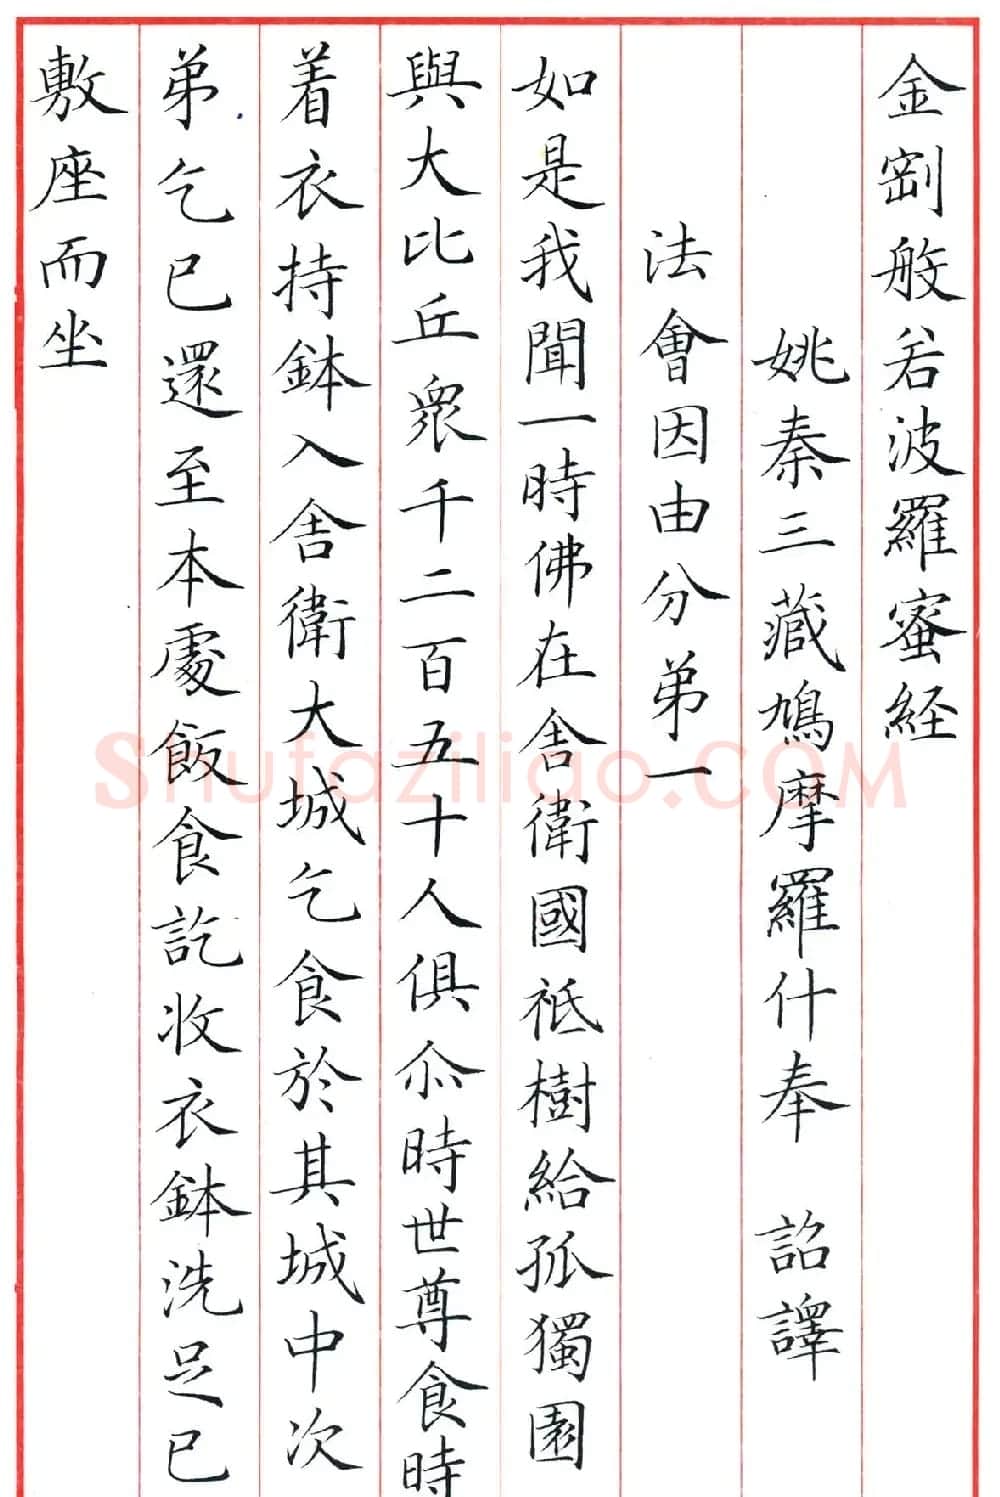 金剛般若波羅蜜経
姚秦三藏鳩摩羅什奉 詔譯
法會因由分弟一
如是我聞一時佛在舎衛國祇樹給孤獨園
與大比丘衆千二百五十人俱尒時世尊食時
着衣持鉢入舎衛大城乞食於其城中次
弟乞已還至本處飯食訖收衣鉢洗足已
敷座而坐
shufaziliao.COM